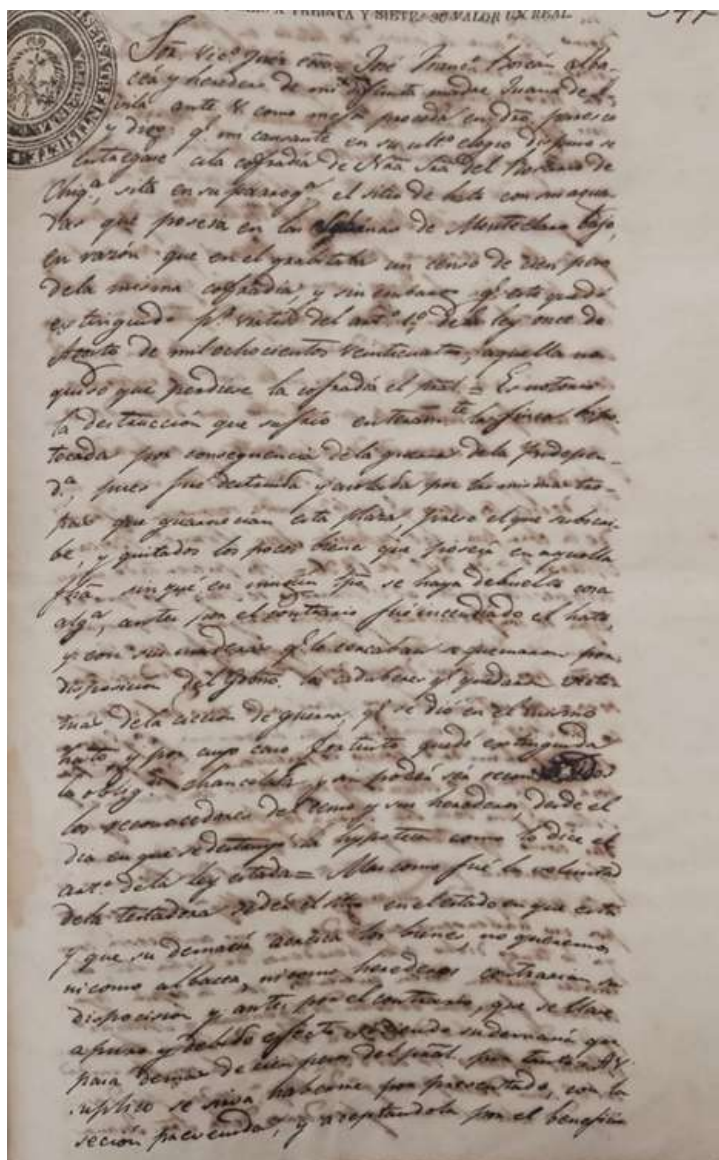 TREINTA Y SIETE: SU VALOR UN REAL
Sor. Vico. Juez ecco. José Franco. Borcán alba-
cea y heredero de mi difunta madre Juana de
ante V. como mejor proceda en dro. paresco
y digo: qe. mi causante en su ulto. elogio dispuso se
entregase a la cofradía de Nrã. Srã. del Rosario de
Chiqa., sita en su parroqa. el sitio de hato con sus agua-
das que poseía en las Sabanas de Monteclaro bajo,
en razón que en el gravitaba un censo de cien pesos
dela misma cofradía, y sin embargo qe. este quedó
extinguido pr. virtud del arto. 1o. de la ley once de
Agosto de mil ochocientos veinticuatro, aquella no
quiso que perdiese la cofradía el pral. = Es notorio
la destrucción que sufrió enteramte. la finca hipo-
tecada por consequencia de la guerra dela Yndepen-
da., pues fué destruida y asolada por las mismas tro-
pas que guarnecían esta plaza, preso el que subscri-
be, y quitados los pocos bienes que poseía en aquella
fha. sin qué en ningún tpõ. se haya debuelto cosa
alga., antes por el contrario fué incendiado el hato,
y con sus maderas qe. lo cercaban se quemaron por
disposición del Gobno. los cadaberes qe. quedaron
dela acción de guerra, qe. se dió en el mismo
hato, y por cuyo caso fortuito quedó extinguida
la obligon. chancelada y no podrá ser
los reconocedores del censo y sus herederos, desde el
dia en que se destruyó la hypoteca como lo dice el
arto. de la ley citada = Mas como fué la voluntad
dela testadora se dé el sitio en el estado en que está
y que su demacía acrezca los bienes, no queremos
ni como albacea, ni como herederos contrariar su
disposición y antes por el contrario, que se lleve
a puro y debido efecto su demacía que
para demas de cien pesos del pral. por tanto = A V.
suplico se sirva haberme por presentado, con la
seción prevenida, y aceptandola por el beneficio